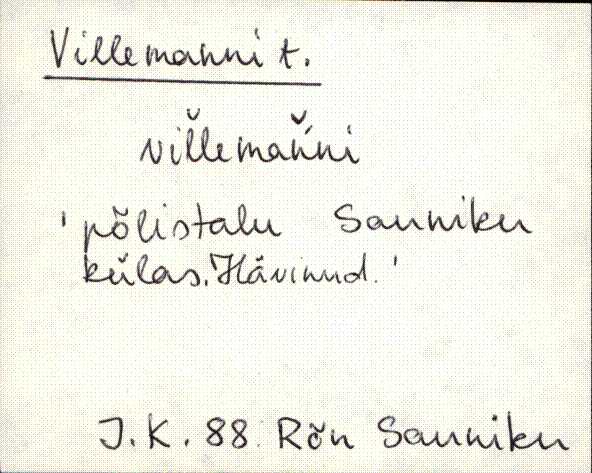 Villemanni t.
vil̆lemaň́ni
'põlistalu Sauniku
külas. Hävinud.'
J.K. 88. Rõn Sauniku